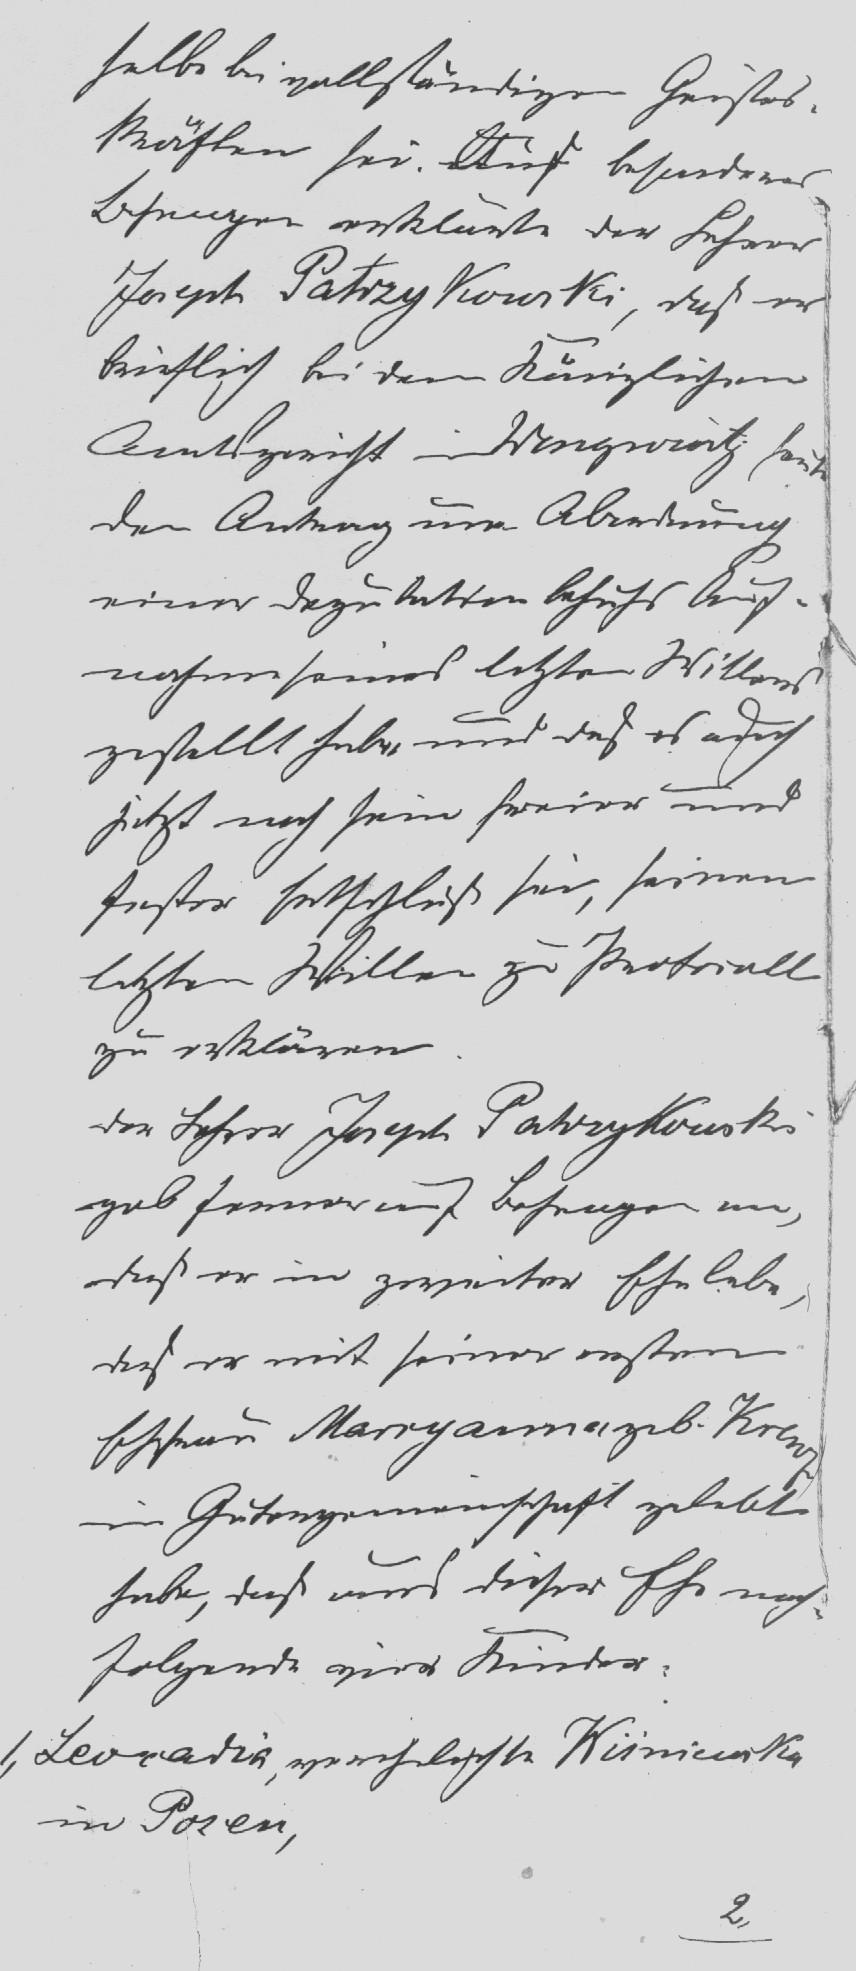 selbe bei vollständigen Geistes-
kräften sei. Auf besonderes
Befragen erklärte der Lehrer
Joseph Patrzykowski, daß er
brieflich bei dem Königlichen
Amtsgericht in Wongrowitz heute
den Antrag um Abordnung
einer Deputation behufs Auf-
nahme seines letzten Willens
gestellt habe und daß es auch
jetzt noch sein freier und
fester Entschluß sei, seinen
letzten Willen zu Protocoll
zu erklären.
Der Lehrer Joseph Patrzykowski
gab ferner auf Befragen an,
daß er in zweiter Ehe lebe,
daß er mit seiner ersten
Ehefrau Maryanna geb.
in Gütergemeinschaft gelebt
habe, daß aus dieser Ehe nach-
folgende vier Kinder:
1, Leocadia, verehelichte Wisniewska
in Posen,
2,